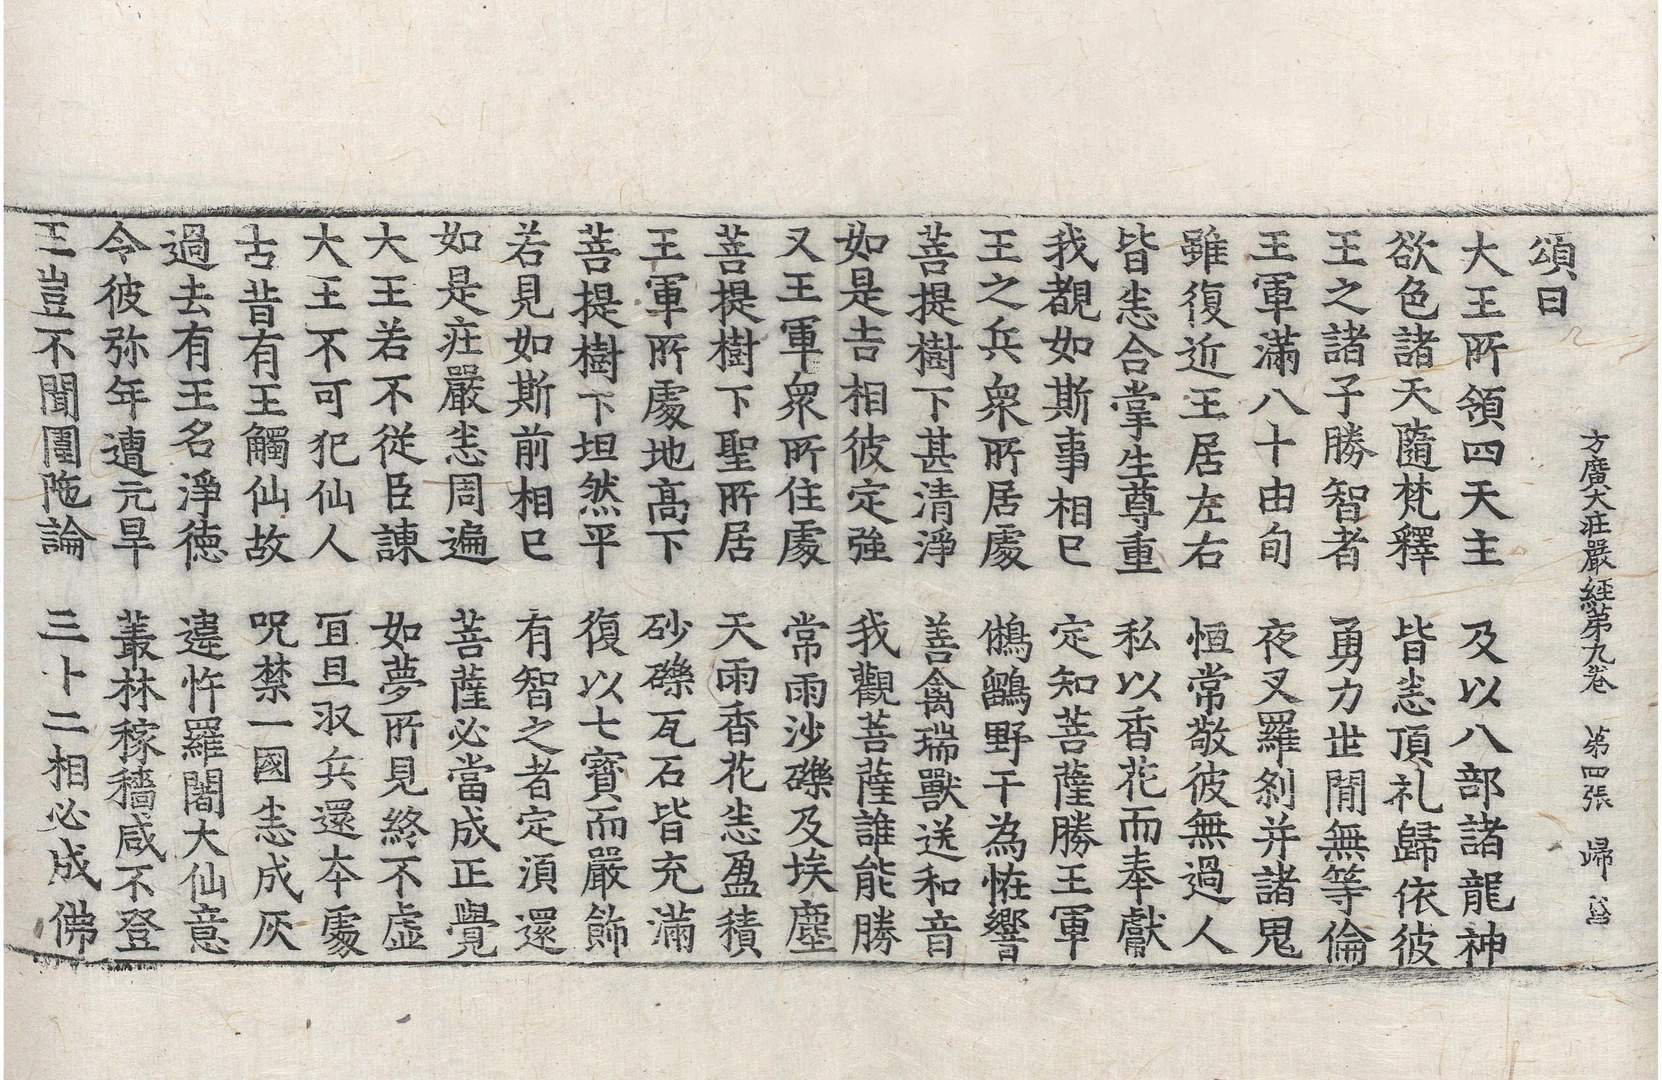 方廣大莊嚴經第九卷 第四張 歸
頌曰
大王所領四天主 及以八部諸龍神
欲色諸天隨梵釋 皆悉頂礼歸依彼
王之諸子勝智者 勇力世閒無等倫
王軍滿八十由旬 夜叉羅剎并諸鬼
雖復近王居左右 恒常敬彼無過人
皆悉合掌生尊重 私以香花而奉獻
我覩如斯事相已 定知菩薩勝王軍
王之兵衆所居處 鵂鶹野干為恠響
菩提樹下甚清淨 善禽瑞獸送和音
如是吉相彼定強 我觀菩薩誰能勝
又王軍衆所住處 常雨沙礫及埃塵
菩提樹下聖所居 天雨香花悉盈積
王軍所處地高下 砂礫瓦石皆充滿
菩提樹下坦然平 復以七寶而嚴飾
若見如斯前相已 有智之者定須還
如是莊嚴悉周遍 菩薩必當成正覺
大王若不從臣諫 如夢所見終不虛
大王不可犯仙人 宜且收兵還本處
古昔有王觸仙故 呪禁一國悉成灰
過去有王名淨德 違忤羅闍大仙意
令彼弥年遭亢旱 叢林稼穡咸不登
王豈不聞圍陁論 三十二相必成佛